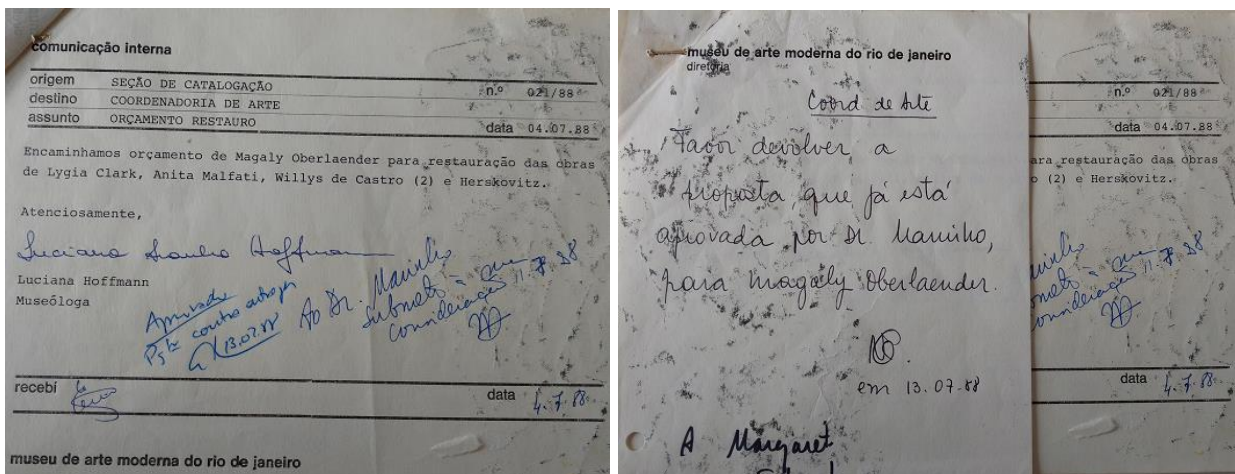 comunicação interna
origem SEÇÃO DE CATALOGAÇÃO n.º 021/88
destino COORDENADORIA DE ARTE
assunto ORÇAMENTO RESTAURO data 04.07.88
Encaminhamos orçamento de Magaly Oberlaender para restauração das obras
de Lygia Clark, Anita Malfati, Willys de Castro (2) e Herskovitz.
Atenciosamente,
Luciana Hoffmann
Luciana Hoffmann
Museóloga
Aprovado
Pgto contra entrega
13.07.88
Ao Dr. Marinho
submeto à sua
consideração 11.7.88
recebi data 4.7.88
museu de arte moderna do rio de janeiro
museu de arte moderna do rio de janeiro
diretoria
Coord de Arte
Favor devolver a
proposta, que já está
aprovada por Dr. Marinho,
para Magaly Oberlaender.
em 13.07.88
A Margaret
n.º 021/88
data 04.07.88
ara restauração das obras
o (2) e Herskovitz.
arinho
submeto à sua
consideração 11.7.88
data 4.7.88